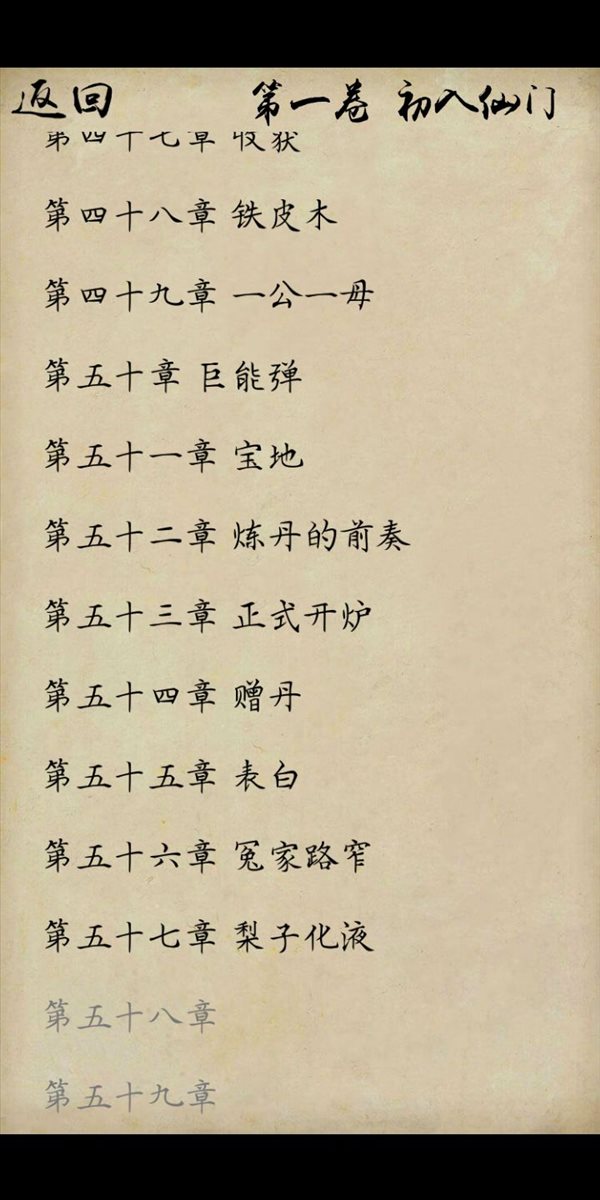 返回 第一卷 初入仙门
第四十七章 收获
第四十八章 铁皮木
第四十九章 一公一母
第五十章 巨能弹
第五十一章 宝地
第五十二章 炼丹的前奏
第五十三章 正式开炉
第五十四章 赠丹
第五十五章 表白
第五十六章 冤家路窄
第五十七章 梨子化液
第五十八章
第五十九章